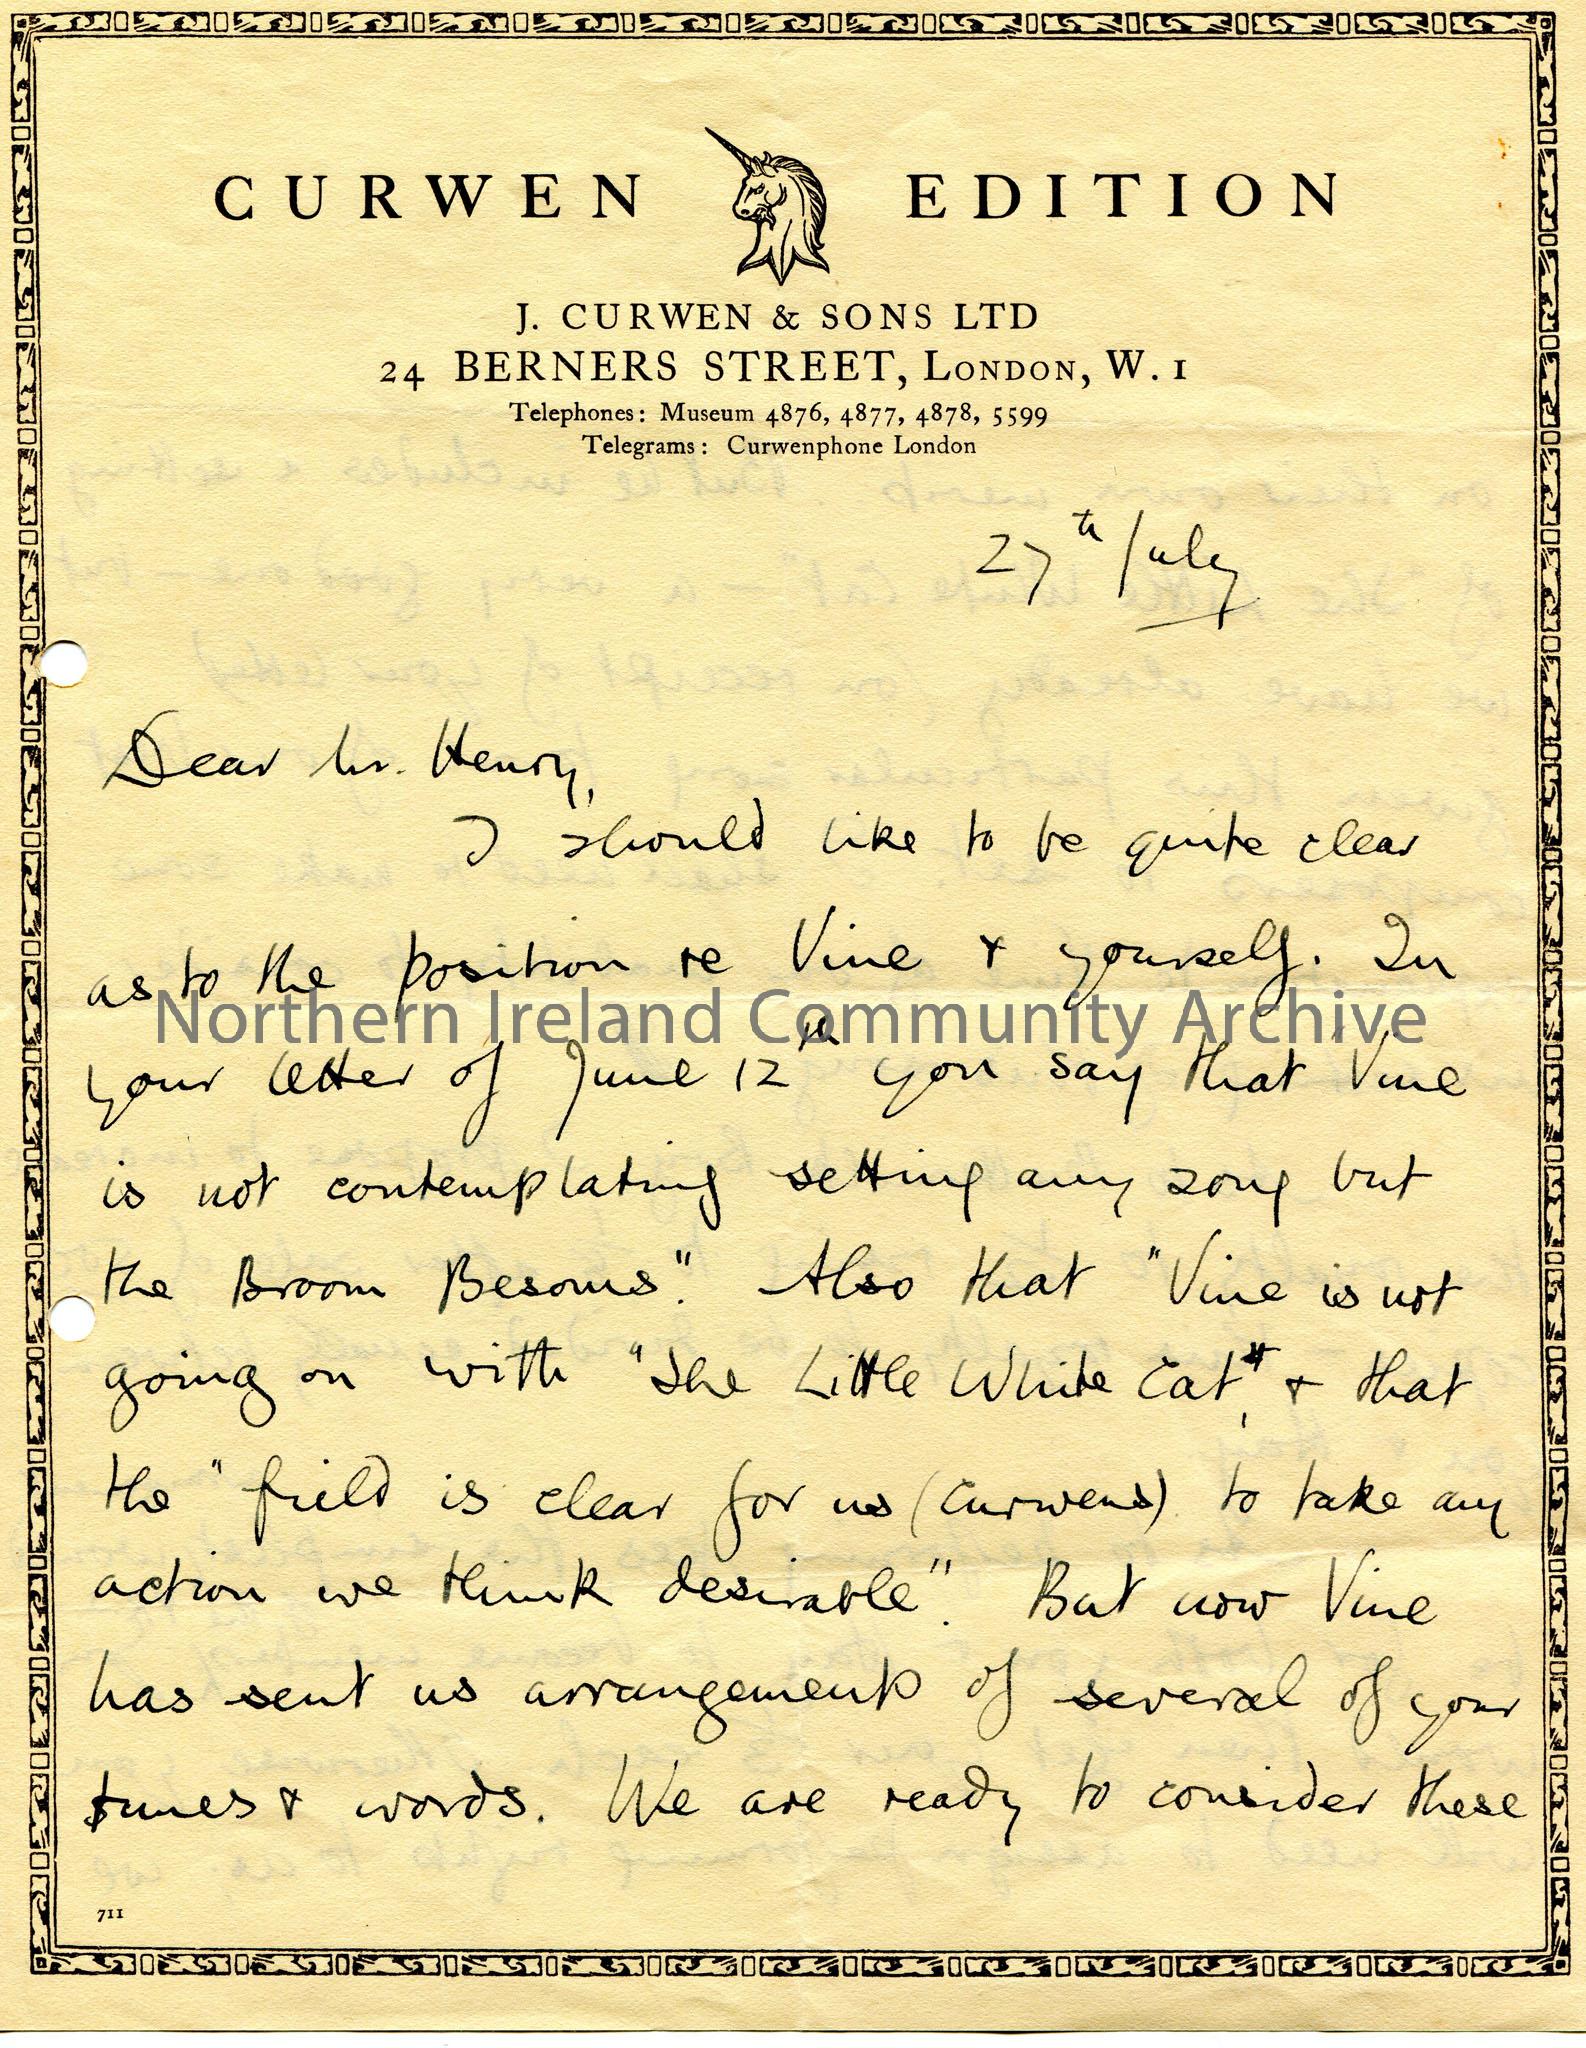 CURWEN EDITION
J. CURWEN & SONS LTD
24 BERNERS STREET, LONDON, W. 1
Telephones: Museum 4876, 4877, 4878, 5599
Telegrams: Curwenphone London
27th July
Dear Mr. Henry,
I should like to be quite clear
as to the position re Vine & yourself. In
Northern Ireland Community Archive
your letter of June 12th you say that Vine
is not contemplating setting any song but
the Broom Besoms". Also that "Vine is not
going on with "The Little White Cat", & that
the "field is clear for us (Curwens) to take any
action we think desirable". But now Vine
has sent us arrangements of several of your
tunes & words. We are ready to consider these
711